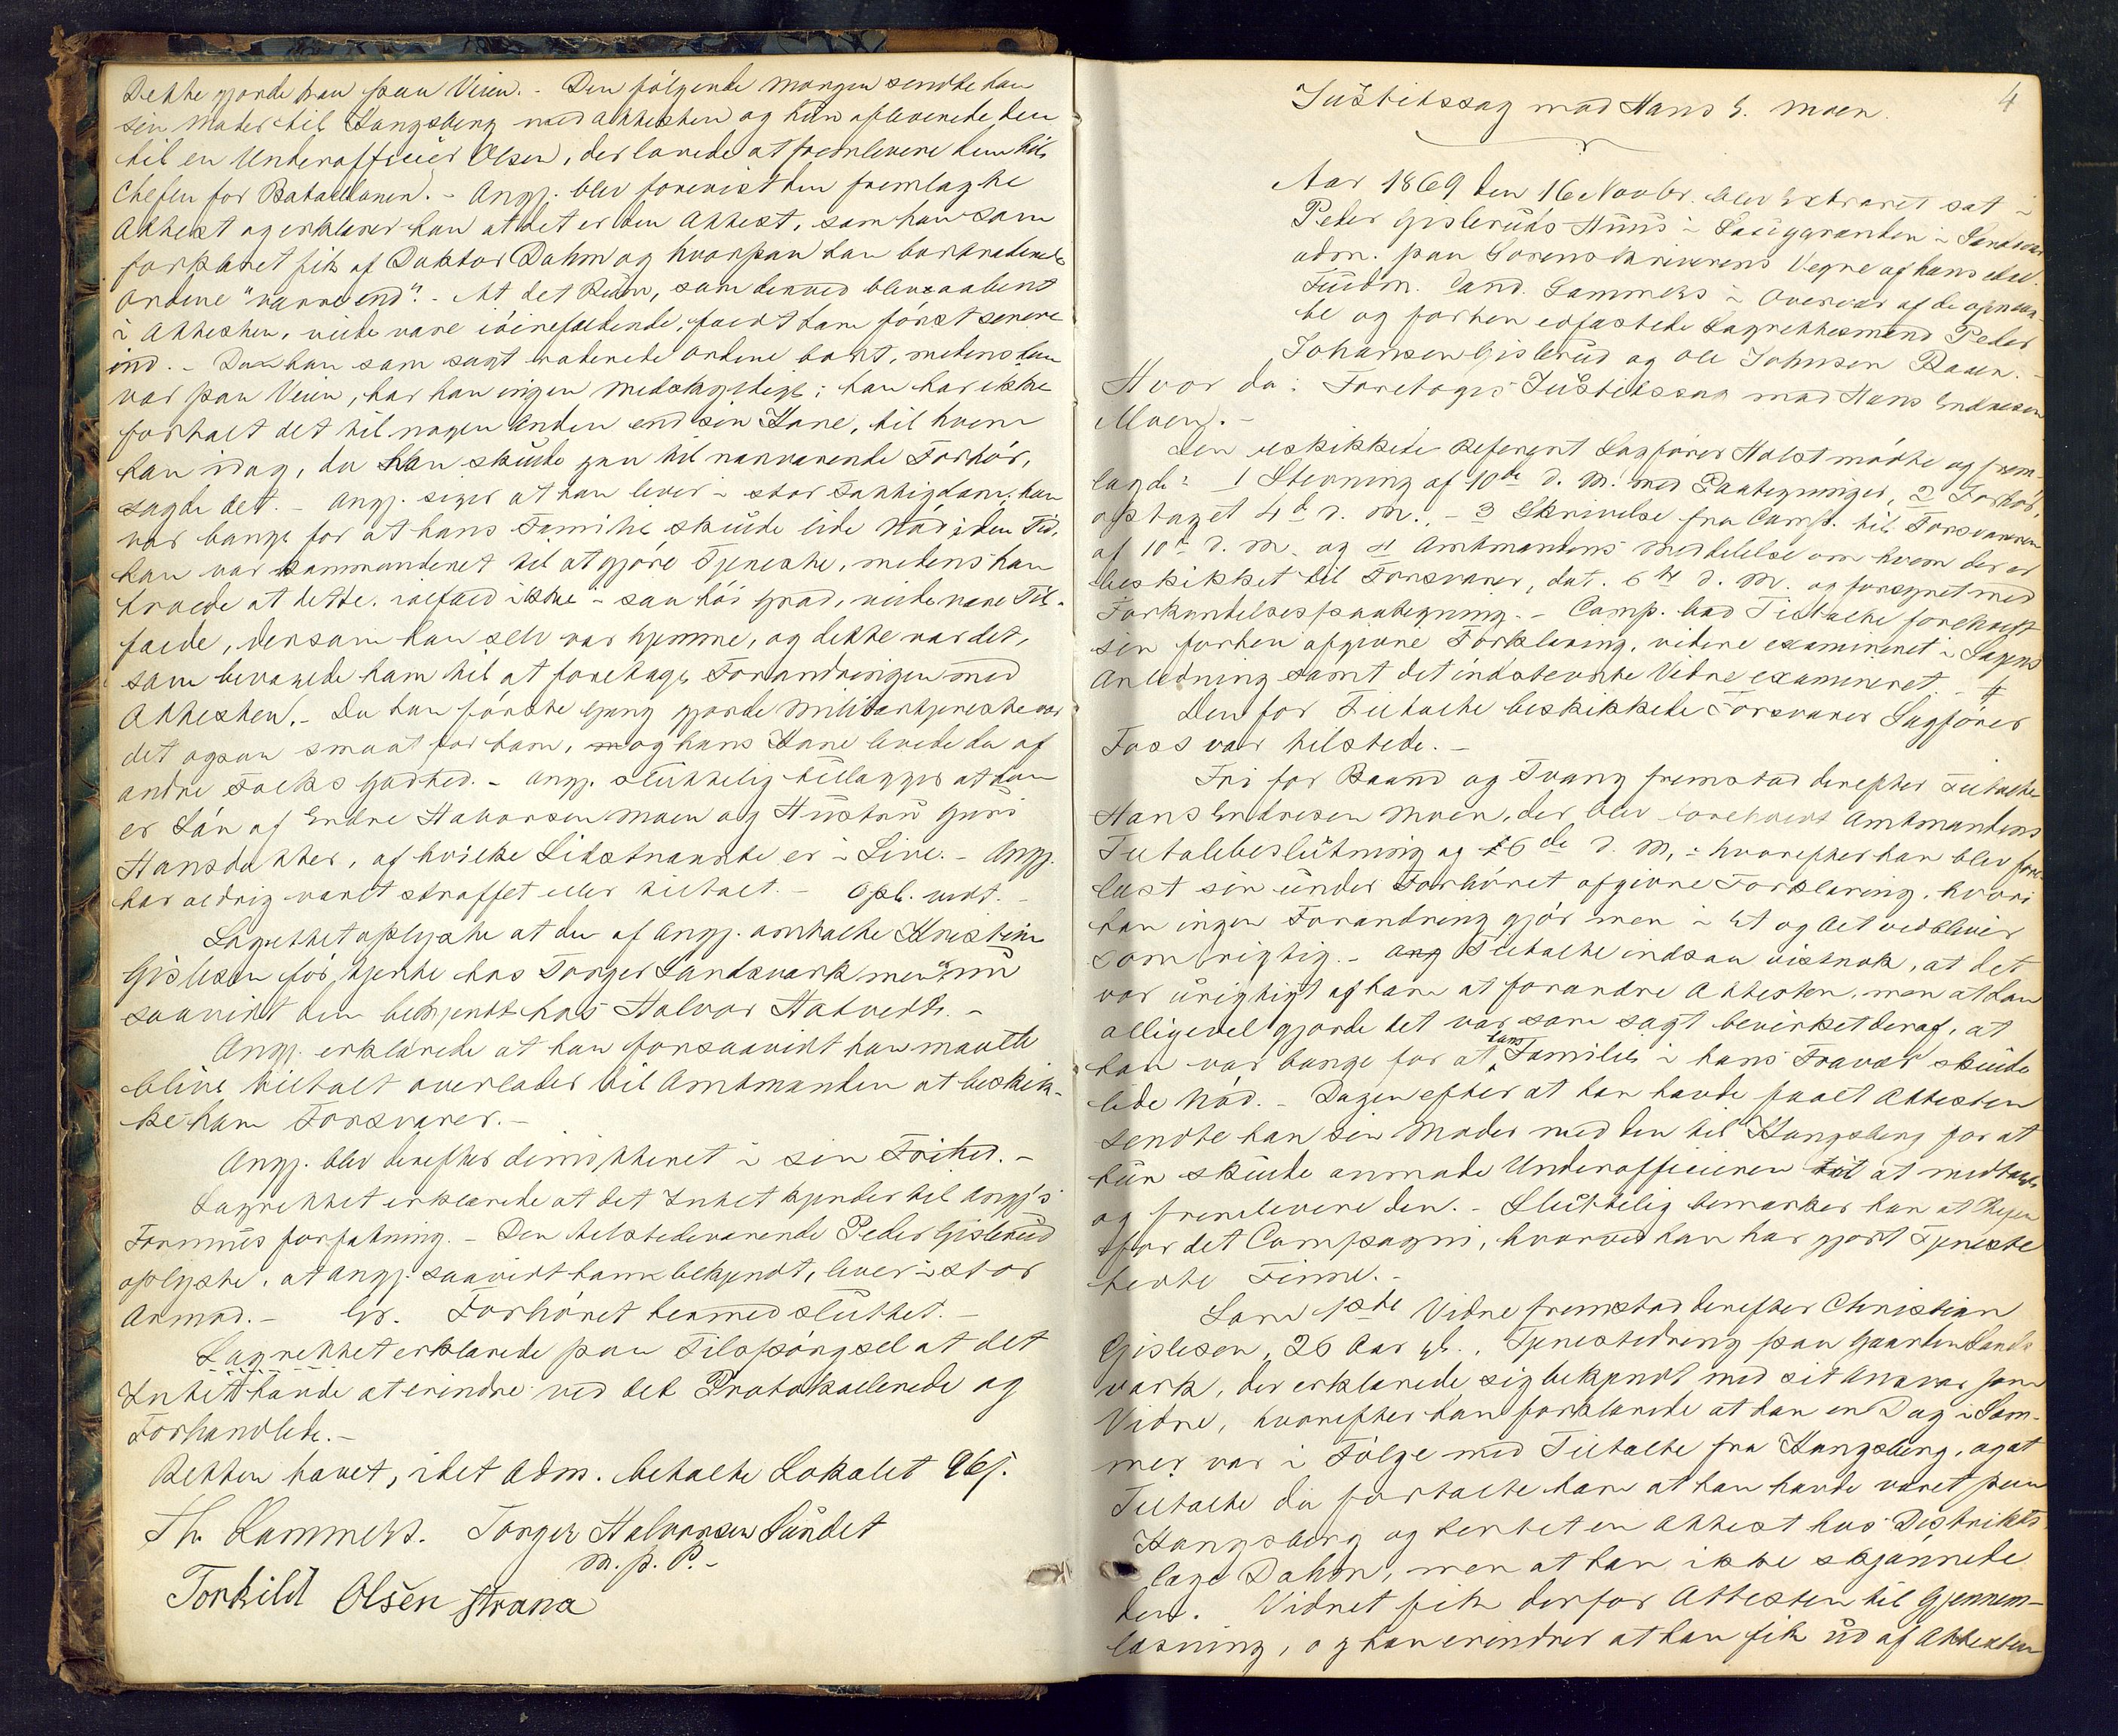 Dette gjorde han paa Veien. - Den følgende Morgen sendte han
sin Moder til Kongsberg med Attesten og hun afleverede den
til en Underofficier Olsen, der lovede at fremlevere den til
Chefen for Batallionen. - Angj. blev forevist den fremlagte
Attest og erklærer han at det er den Attest, som han som
forklaret fik af Doktor Dahm og hvorpaa han bortraderede
Ordene "varre end". - At det Rum, som derved blev aabent
i Attesten, vilde være iøinefaldende, faldt ham først senere
ind. - Da han som sagt raderede Ordene bort, medens han
var paa Veien, har han ingen Medskyldige; han har ikke
fortalt det til nogen Anden end sin Kone, til hvem
han idag, da han skulde gaa til nærværende Forhør,
sagde det. - Angj. siger at han lever i stor Fattigdom; han
var bange for at hans Familie skulde lide Nød i den Tid,
han var kommanderet til at gjøre Tjeneste, medens han
troede at dette, ialfald ikke i saa høi Grad, vilde være Til-
fælde, dersom han selv var hjemme, og dette var det,
som bevægede ham til at foretage Forandringen med
Attesten. - Da han første Gang gjorde Militærtjeneste var
det ogsaa smaat for ham, og hans Kone levede da af
andre Folks Godhed. - Angj. sluttelig tillægger at han
er Søn af Endre Halvorsen Moen og Hustru Guri
Hansdatter, af hvilke Sidstnævnte er i Live. - Angj.
har aldrig været straffet eller tiltalt. - Opl. vedt. -
Lagrettet oplyste at den af Angj. omtalte Kristian
Gislesen før tjente hos Torger Landsværk men nu
saavidt dem bekjendt hos Halvor Hatvedt. -
Angj. erklærede at han forsaavidt han maatte
blive tiltalt overlader til Amtmanden at beskik-
ke ham Forsvarer. -
Angj. blev derefter dimitteret i sin Frihed. -
Lagrettet erklærede at det Intet kjender til Angj's
Formues forfatning. - Den tilstedeværende Peder Gislerud
oplyste, at Angj. saavidt ham bekjendt, lever i stor
Armod. - Forhøret hermed sluttet. -
Lagrettet erklærede paa Tilspørgsel at det
Intet havde at erindre ved det Protokollerede og
Forhandlede. -
Retten hævet, idet Adm. betalte Lokalet 96 ſ.
Th. Lammers. Torger Halvorsen Sundet
m. p. P. -
Torkild Olsen Strana
4
Justitssag mod Hans E. Moen.
Aar 1869 den 16 Novbr. blev Extraret sat i
Peder Gisleruds Huus i Lauggranden i Sandsvær
adm. paa Sorenskriverens Vegne af hans edsv.
Fuldm. Cand. Lammers i Overvær af de opnævn-
te og forhen edfæstede Lagrettesmænd Peder
Johansen Gislerud og Ole Johnsen Baaen. -
Hvor da: Foretoges Justitssag mod Hans Endresen
Moen. -
Den beskikkede Referent Sagfører Holst mødte og frem-
lagde: 1 Stevning af 10de d. M. med Paategninger, 2 Forhør,
optaget 4d d. M., - 3 Skrivelse fra Comp. til Forsvareren
af 10d d. M. og 4 Amtmandens Meddelelse om hvem der er
beskikket til Forsvarer, dat. 6te d. M. og forsynet med
Forkyndelsespaategning. - Comp. bad Tiltalte foreholdt
sin forhen afgivne Forklaring, videre examineret i Sagens
Anledning samt det indstevnte Vidne examineret. -
Den for Tiltalte beskikkede Forsvarer Sagfører
Foss var tilstede. -
Fri for Baand og Tvang fremstod derefter Tiltalte
Hans Endresen Moen, der blev foreholdt Amtmandens
Tiltalebeslutning af 6de d. M., hvorefter han blev fore-
læst sin under Forhøret afgivne Forklaring, hvori
han ingen Forandring gjør men i Et og Alt vedbliver
som rigtig. - Tiltalte indsaa vistnok, at det
var urigtigt af ham at forandre Attesten, men at han
alligevel gjorde det var som sagt bevirket deraf, at
han var bange for at hans Familie i hans Fravær skulde
lide Nød. - Dagen efter at han havde faaet Attesten
sendte han sin Moder med den til Kongsberg for at
hun skulde anmode Underofficieren at medtage
og fremlevere den. - Sluttelig bemærker han at Chefen
for det Compagni, hvorved han har gjort Tjeneste
hedte Finne. -
Som 1ste Vidne fremstod derefter Christian
Gislesen, 26 Aar gl., Tjenestedreng paa Gaarden Lands-
værk, der erklærede sig bekjendt med sit Ansvar som
Vidne, hvorefter han forklarede at han en Dag i Som-
mer var i Følge med Tiltalte fra Kongsberg, og at
Tiltalte da fortalte ham at han havde været paa
Kongsberg og hentet en Attest hos Distrikts-
læge Dahm, men at han ikke skjønnede
den. Vidnet fik derfor Attesten til Gjennem-
læsning, og han erindrer at han fik ud af Attesten